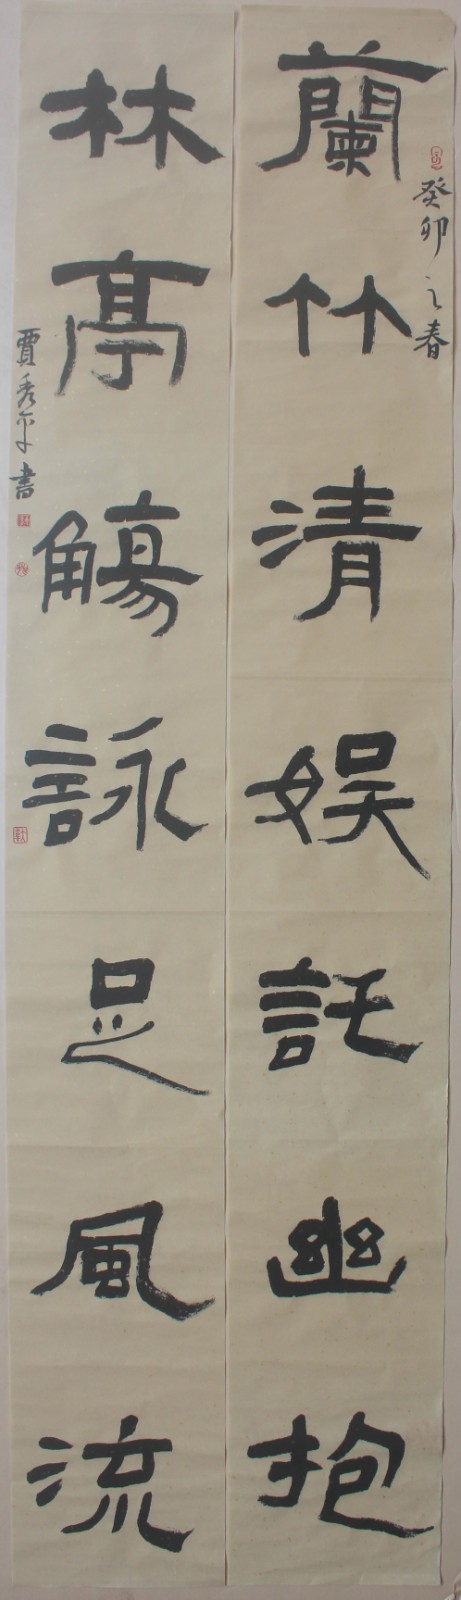 癸卯之春
蘭竹清娱託幽抱
林亭觴詠足風流
賈秀平書